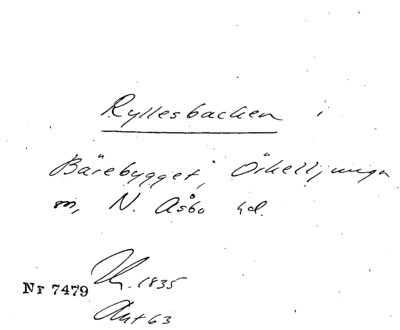 Ryllesbacken i
Bärebygget, Örkelljunga
m, N. Åsbo hd.
Nr 7479
1835
Ant 63